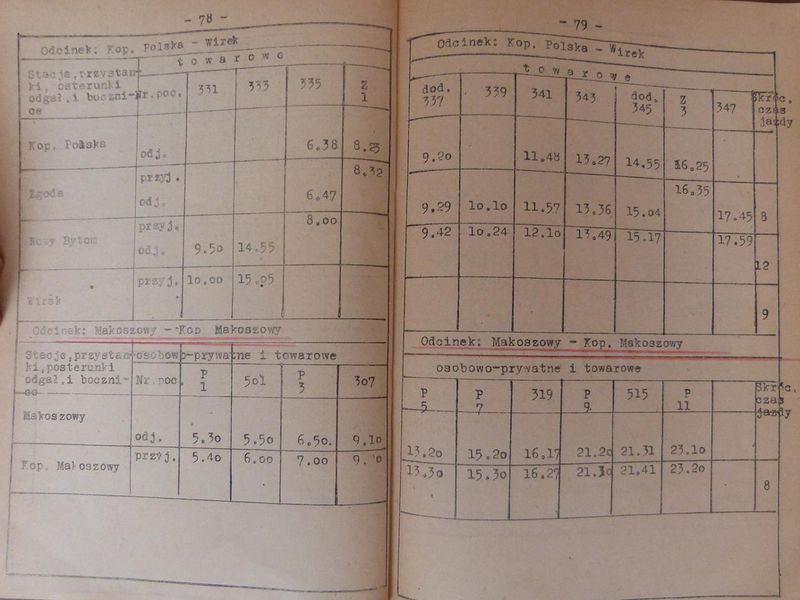 - 78 -
Odcinek: Kop. Polska - Wirek
towarowe
Stacje, przystan-
ki, posterunki
odgał. i boczni-
ce
Nr. poc. 331 333 335 Z 1
Kop. Polska odj. 6.38 8.23
Zgoda przyj. 8.32
odj. 6.47
Nowy Bytom przyj. 8.00
odj. 9.50 14.55
Wirek przyj. 10.00 15.05
Odcinek: Makoszowy - Kop. Makoszowy
Stacje, przystan- osobowo-prywatne i towarowe
ki, posterunki
odgał. i boczni-
ce
Nr. poc. P 1 501 P 3 307
Makoszowy odj. 5.30 5.50 6.50. 9.10
Kop. Makoszowy przyj. 5.40 6.00 7.00
- 79 -
Odcinek: Kop. Polska - Wirek
towarowe
dod. 337 339 341 343 dod. 345 Z 3 347 Skróc. czas jazdy
9.20 11.48 13.27 14.55 16.25
16.35
9.29 10.10 11.57 13.36 15.04 17.45 8
9.42 10.24 12.10 13.49 15.17 17.59
12
9
Odcinek: Makoszowy - Kop. Makoszowy
osobowo-prywatne i towarowe
P 5 P 7 319 P 9 515 P 11 Skróc. czas jazdy
13.20 15.20 16.17 21.20 21.31 23.10
13.30 15.30 16.27 21.30 21.41 23.20
8